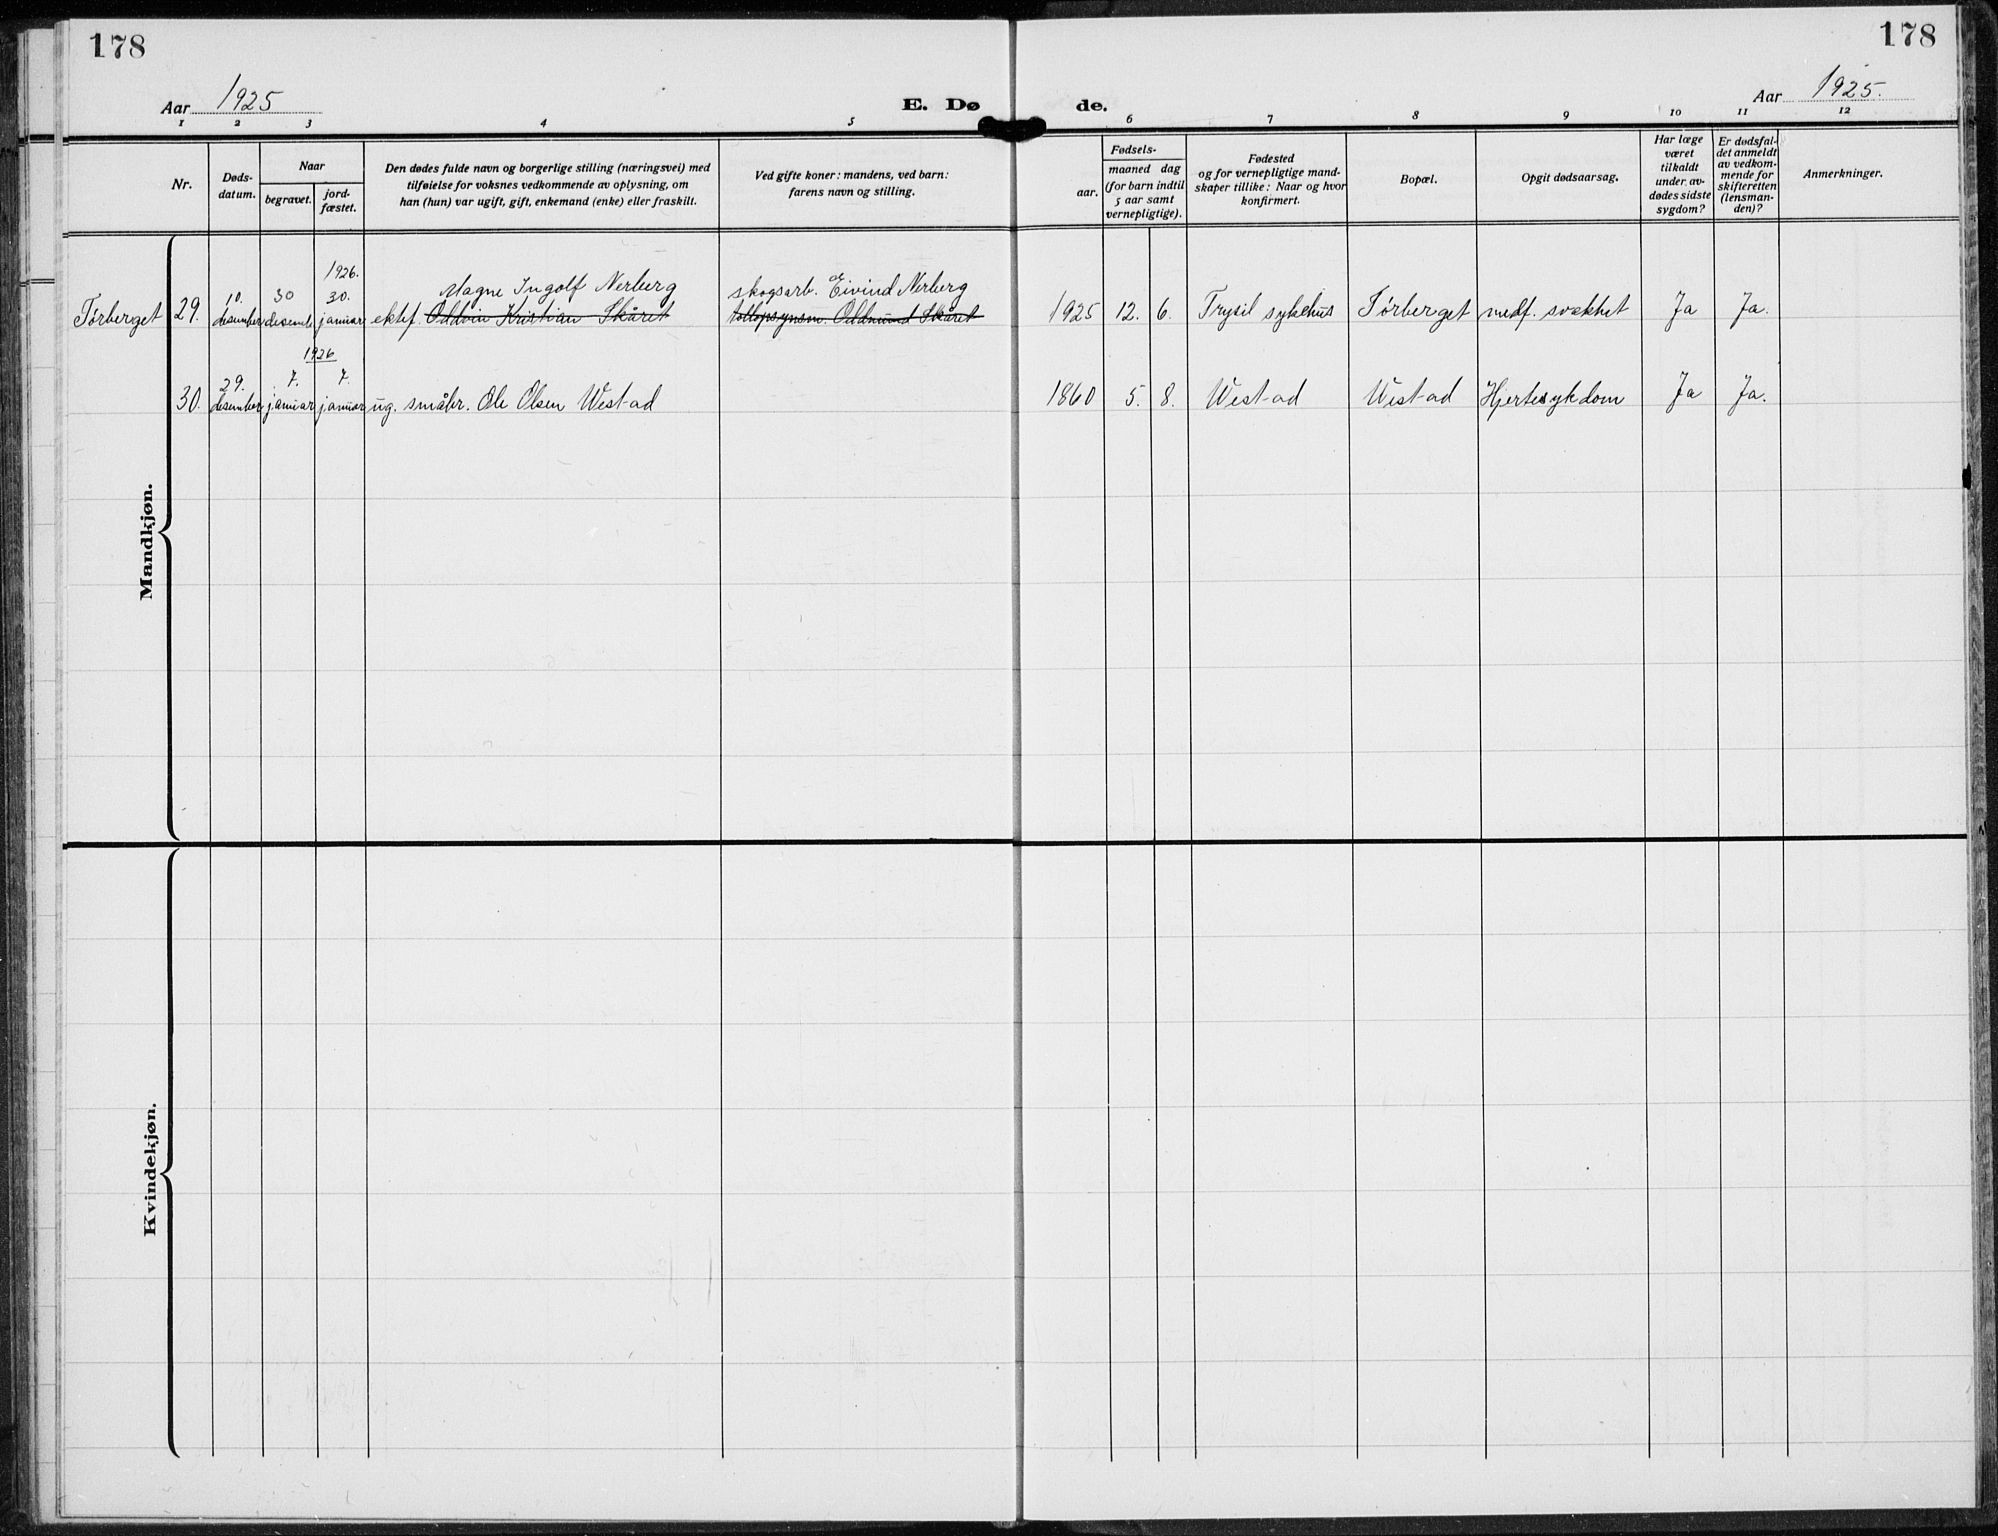 178
178
Aar 1925
E. Dø
de.
Aar 1925.
1 2 3 4 5 6 7 8 9 10 11 12
Nr.
Døds-
datum.
Naar
begravet.
jord-
fæstet.
Den dødes fulde navn og borgerlige stilling (næringsvei) med
tilføielse for voksnes vedkommende av oplysning, om
han (hun) var ugift, gift, enkemand (enke) eller fraskilt.
Ved gifte koner: mandens, ved barn:
farens navn og stilling.
Fødsels-
aar.
maaned dag
(for barn indtil
5 aar samt
vernepligtige).
Fødested
og for vernepligtige mand-
skaper tillike: Naar og hvor
konfirmert.
Bopæl.
Opgit dødsaarsag.
Har læge
været
tilkaldt
under av-
dødes sidste
sygdom?
Er dødsfal-
det anmeldt
av vedkom-
mende for
skifteretten
(lensman-
den)?
Anmerkninger.
Mandkjøn.
1926.
10. 30 30. Magne Ingolf Nerberg skogsarb. Eivind Nerberg
Tørberget 29. desember desemb. januar ektef. Oddvin Kristian Skåret tollopsynsm. Oddmund Skåret 1925 12. 6. Trysil sykehus Tørberget medf. svakhet Ja Ja.
1926
29. 7. 7.
30. desember januar januar ug. småbr. Ole Olsen Westad 1860 5. 8. Westad Westad Hjertesykdom Ja Ja.
Kvindekjøn.